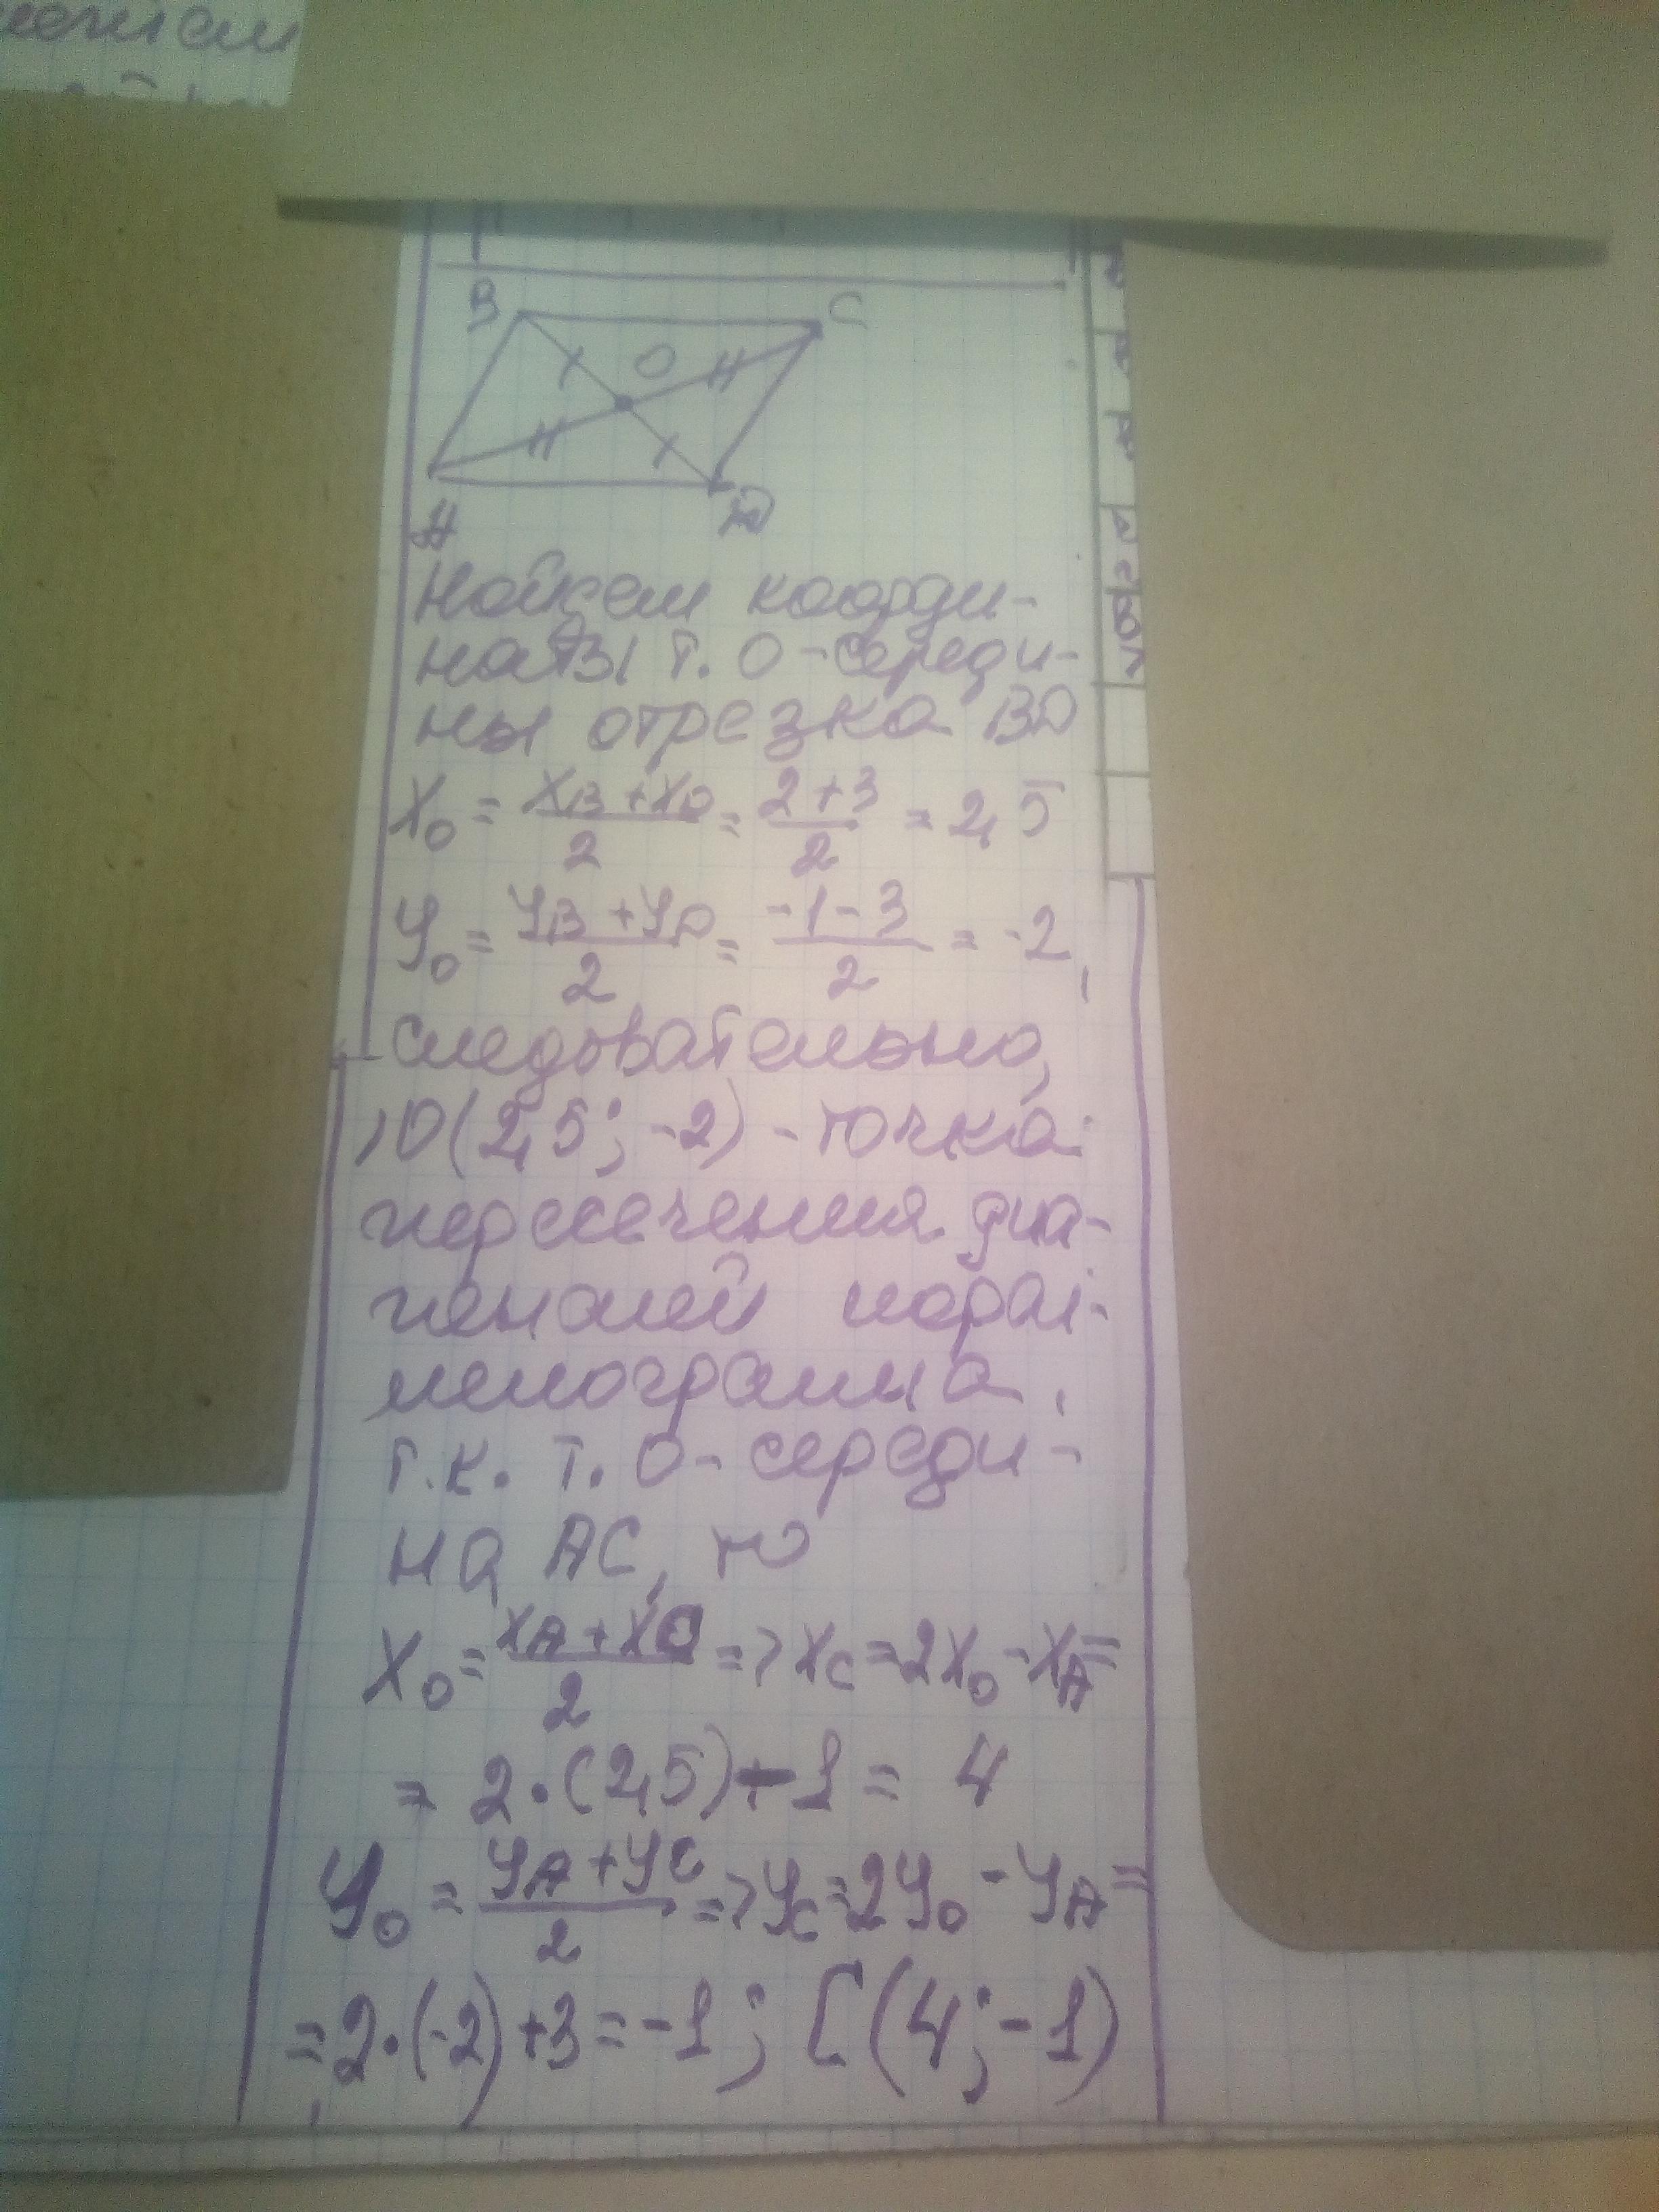 B C
O
A D
Найдем коорди-
наты т. O - середи-
ны отрезка BD
X₀ = (X_B + X_D)/2 = (2+3)/2 = 2,5
y₀ = (y_B + y_D)/2 = (-1-3)/2 = -2,
следовательно,
O(2,5; -2) - точка
пересечения диа-
гоналей парал-
лелограмма.
т.к. т. O - середи-
на AC, то
X₀ = (X_A + X_C)/2 => X_C = 2X₀ - X_A =
= 2·(2,5) - 1 = 4
y₀ = (y_A + y_C)/2 => y_C = 2y₀ - y_A =
= 2·(-2) + 3 = -1; C(4; -1)